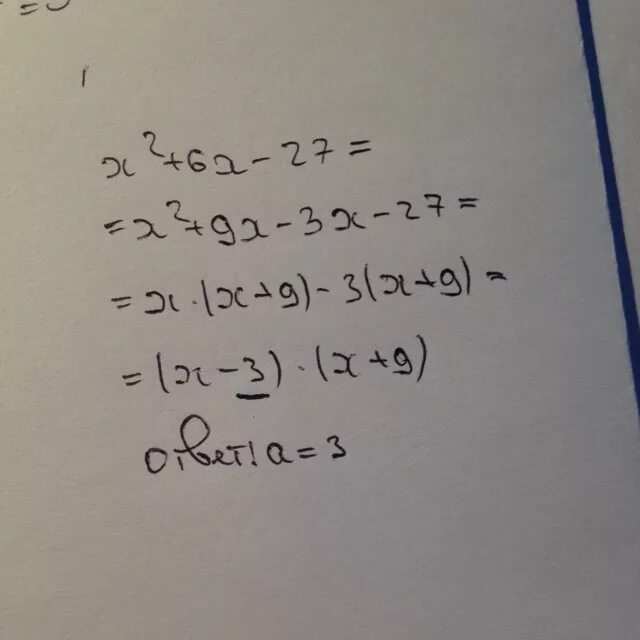 x²+6x-27=
=x²+9x-3x-27=
=x·(x+9)-3(x+9)=
=(x-3)·(x+9)
ответ! a=3